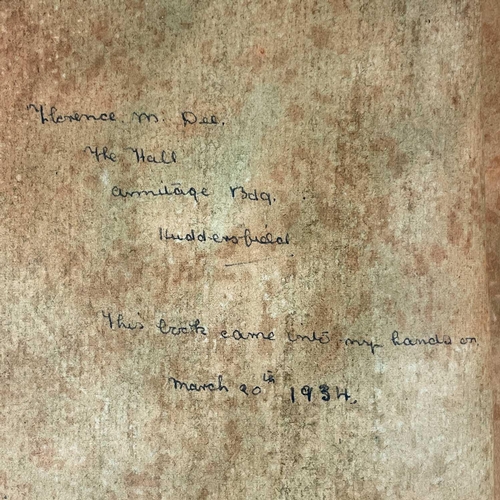 Florence M. Dee.
The Hall
Armitage Bdg.
Huddersfield
This book came into my hands on
March 20th 1934.